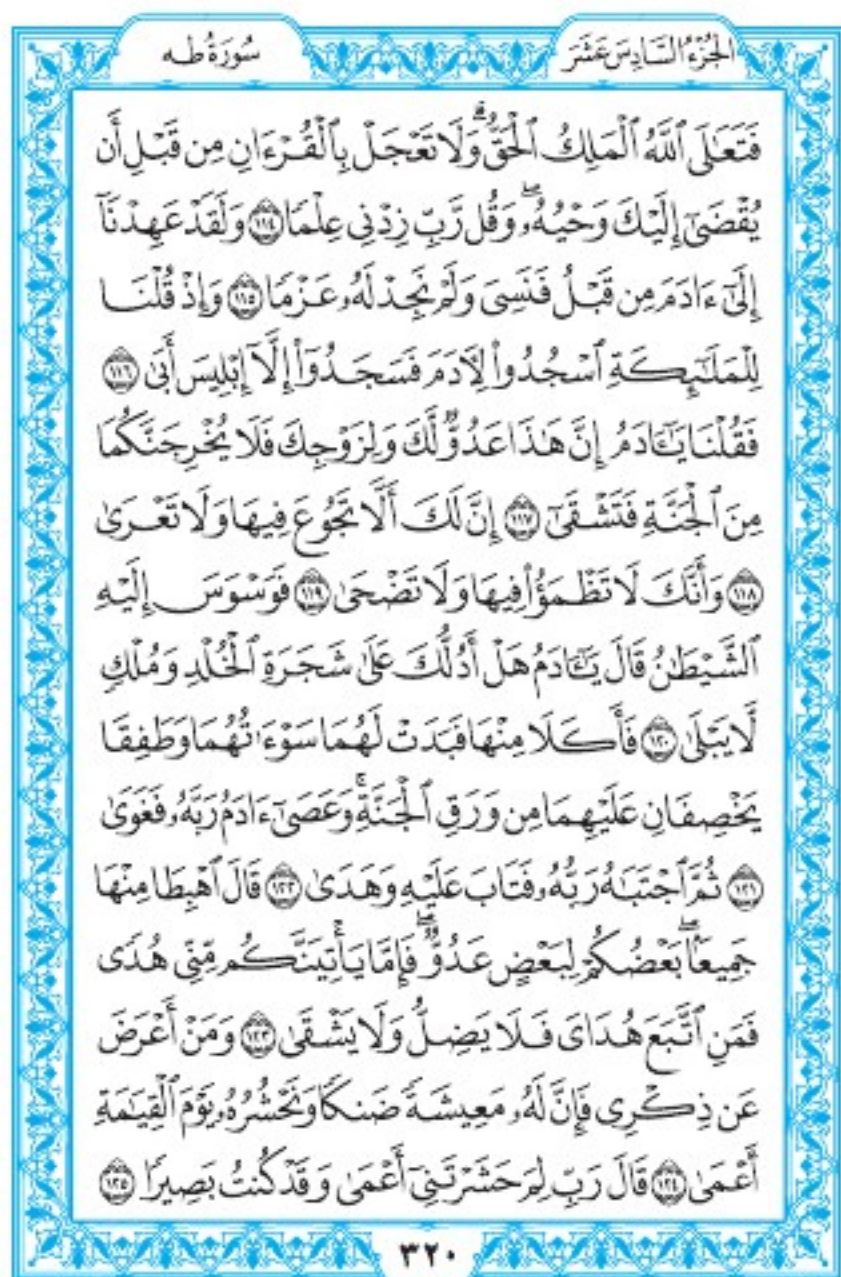 الجُزْءُ السَّادِسَ عَشَرَ
سُورَةُ طه
فَتَعَٰلَى ٱللَّهُ ٱلۡمَلِكُ ٱلۡحَقُّۗ وَلَا تَعۡجَلۡ بِٱلۡقُرۡءَانِ مِن قَبۡلِ أَن
يُقۡضَىٰٓ إِلَيۡكَ وَحۡيُهُۥۖ وَقُل رَّبِّ زِدۡنِي عِلۡمٗا ١١٤ وَلَقَدۡ عَهِدۡنَآ
إِلَىٰٓ ءَادَمَ مِن قَبۡلُ فَنَسِيَ وَلَمۡ نَجِدۡ لَهُۥ عَزۡمٗا ١١٥ وَإِذۡ قُلۡنَا
لِلۡمَلَٰٓئِكَةِ ٱسۡجُدُواْ لِأٓدَمَ فَسَجَدُوٓاْ إِلَّآ إِبۡلِيسَ أَبَىٰ ١١٦
فَقُلۡنَا يَٰٓـَٔادَمُ إِنَّ هَٰذَا عَدُوّٞ لَّكَ وَلِزَوۡجِكَ فَلَا يُخۡرِجَنَّكُمَا
مِنَ ٱلۡجَنَّةِ فَتَشۡقَىٰٓ ١١٧ إِنَّ لَكَ أَلَّا تَجُوعَ فِيهَا وَلَا تَعۡرَىٰ
١١٨ وَأَنَّكَ لَا تَظۡمَؤُاْ فِيهَا وَلَا تَضۡحَىٰ ١١٩ فَوَسۡوَسَ إِلَيۡهِ
ٱلشَّيۡطَٰنُ قَالَ يَٰٓـَٔادَمُ هَلۡ أَدُلُّكَ عَلَىٰ شَجَرَةِ ٱلۡخُلۡدِ وَمُلۡكٖ
لَّا يَبۡلَىٰ ١٢٠ فَأَكَلَا مِنۡهَا فَبَدَتۡ لَهُمَا سَوۡءَٰتُهُمَا وَطَفِقَا
يَخۡصِفَانِ عَلَيۡهِمَا مِن وَرَقِ ٱلۡجَنَّةِۚ وَعَصَىٰٓ ءَادَمُ رَبَّهُۥ فَغَوَىٰ
١٢١ ثُمَّ ٱجۡتَبَٰهُ رَبُّهُۥ فَتَابَ عَلَيۡهِ وَهَدَىٰ ١٢٢ قَالَ ٱهۡبِطَا مِنۡهَا
جَمِيعَۢاۖ بَعۡضُكُمۡ لِبَعۡضٍ عَدُوّٞۖ فَإِمَّا يَأۡتِيَنَّكُم مِّنِّي هُدٗى
فَمَنِ ٱتَّبَعَ هُدَايَ فَلَا يَضِلُّ وَلَا يَشۡقَىٰ ١٢٣ وَمَنۡ أَعۡرَضَ
عَن ذِكۡرِي فَإِنَّ لَهُۥ مَعِيشَةٗ ضَنكٗا وَنَحۡشُرُهُۥ يَوۡمَ ٱلۡقِيَٰمَةِ
أَعۡمَىٰ ١٢٤ قَالَ رَبِّ لِمَ حَشَرۡتَنِيٓ أَعۡمَىٰ وَقَدۡ كُنتُ بَصِيرٗا ١٢٥
٣٢٠